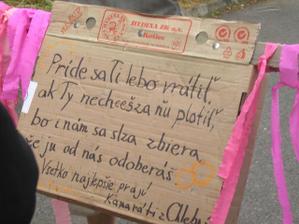 HYDINA ZK a.s.
Košice
Príde sa Ti lebo vrátiť,
ak Ty nechceš za ňu plotiť,
bo i nám sa slza zbiera
že ju od nás odoberáš
Všetko najlepšie prajú
Kamaráti z